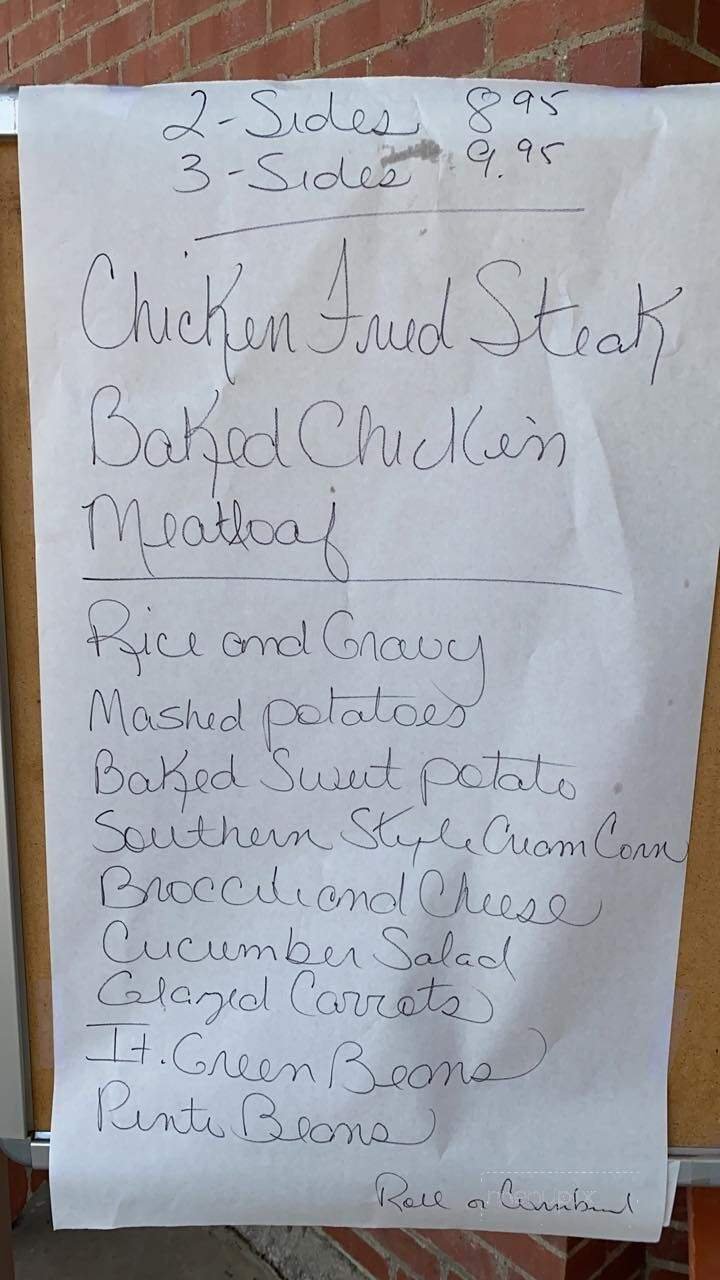 2-Sides 8 95
3-Sides 9.95
Chicken Fried Steak
Baked Chicken
Meatloaf
Rice and Gravy
Mashed potatoes
Baked Sweet potato
Southern Style Cream Corn
Broccoli and Cheese
Cucumber Salad
Glazed Carrots
It. Green Beans
Pinto Beans
Roll or Cornbread